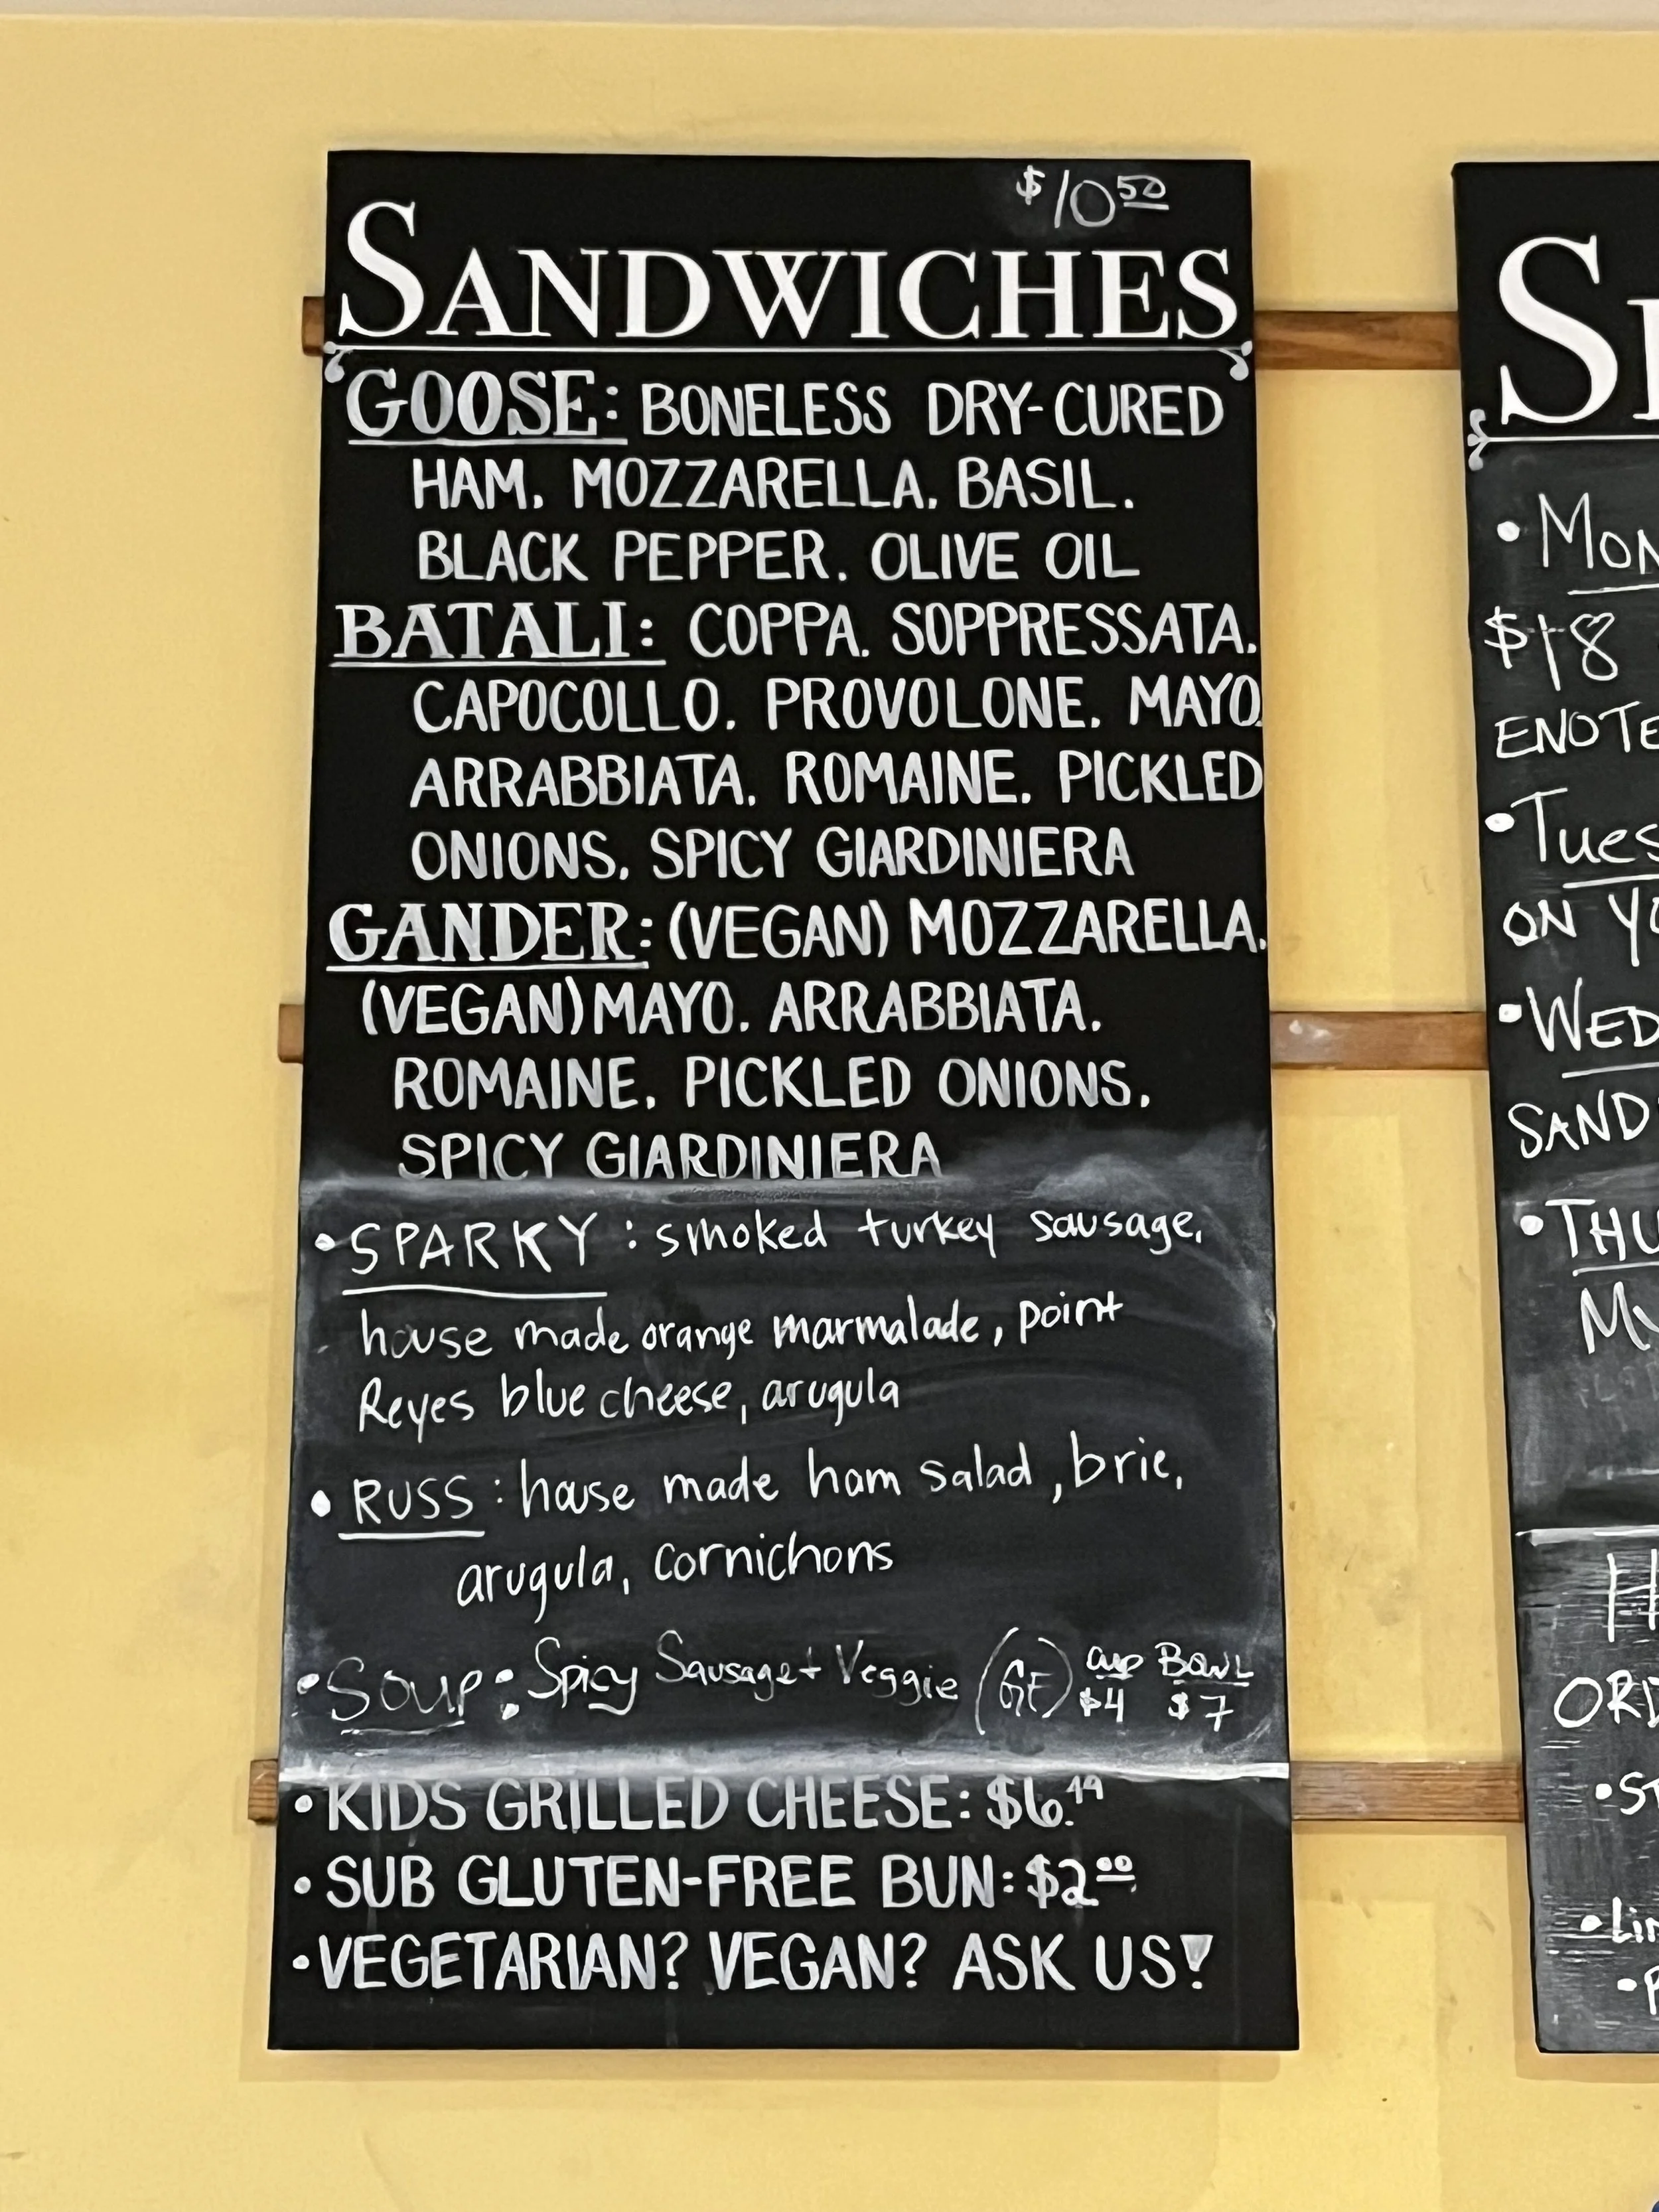 $10.50
SANDWICHES
GOOSE: BONELESS DRY-CURED
HAM, MOZZARELLA, BASIL,
BLACK PEPPER, OLIVE OIL
BATALI: COPPA, SOPPRESSATA,
CAPOCOLLO, PROVOLONE, MAYO,
ARRABBIATA, ROMAINE, PICKLED
ONIONS, SPICY GIARDINIERA
GANDER: (VEGAN) MOZZARELLA,
(VEGAN) MAYO, ARRABBIATA,
ROMAINE, PICKLED ONIONS,
SPICY GIARDINIERA
• SPARKY: smoked turkey sausage,
house made orange marmalade, point
Reyes blue cheese, arugula
• RUSS: house made ham salad, brie,
arugula, cornichons
• Soup: Spicy Sausage + Veggie (GF) cup $4 Bowl $7
• KIDS GRILLED CHEESE: $6.49
• SUB GLUTEN-FREE BUN: $2.00
• VEGETARIAN? VEGAN? ASK US!
• MON
$18
ENOTE
• Tues
ON YO
• WED
SAND
• THU
MY
ORD